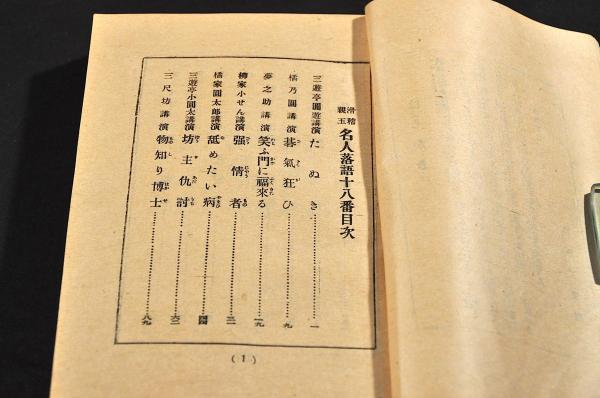 滑稽親玉 名人落語十八番目次
三遊亭圓遊講演 たぬき 一
橘乃圓講演 碁氣狂ひ 九
夢之助講演 笑ふ門に福來る 一九
柳家小せん講演 强情者 三一
橘家圓太郎講演 舐めたい病 四四
三遊亭小圓太講演 坊主仇討 六二
三尺坊講演 物知り博士 八九
(1)